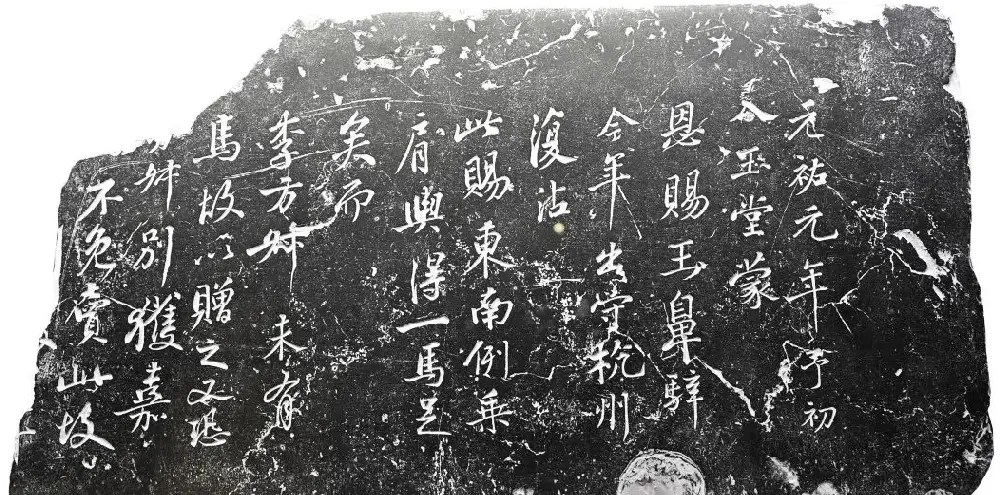 元祐元年予初
入玉堂蒙
恩賜玉鼻騂
今年出守杭州
復沾
此賜東南例乗
肩輿得一馬足
矣而
李方叔未有
馬故以贈之又恐
方叔別獲嘉
不免賣此故